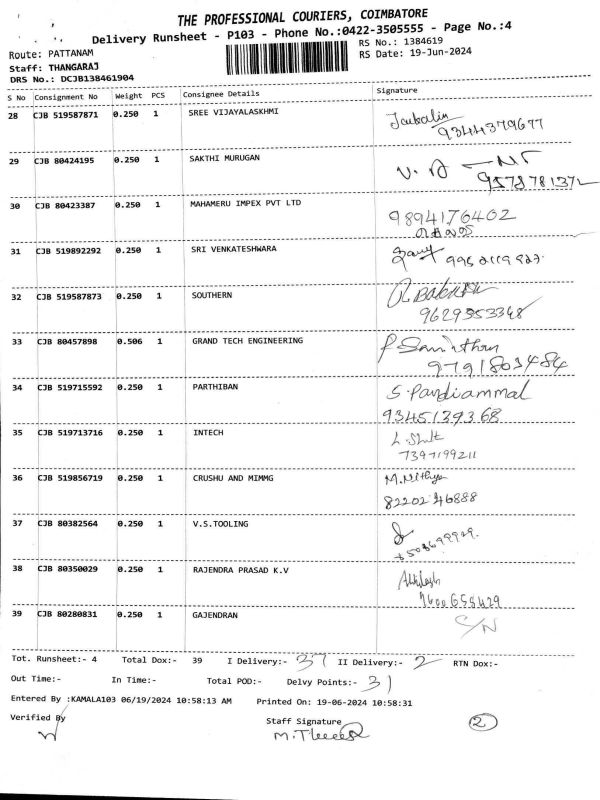 THE PROFESSIONAL COURIERS, COIMBATORE
Delivery Runsheet - P103 - Phone No.:0422-3505555 - Page No.:4
Route: PATTANAM
RS No.: 1384619
Staff: THANGARAJ
RS Date: 19-Jun-2024
DRS No.: DCJB138461904
S No Consignment No Weight PCS Consignee Details Signature
28 CJB 519587871 0.250 1 SREE VIJAYALASKHMI
9344379677
29 CJB 80424195 0.250 1 SAKTHI MURUGAN
9578781372
30 CJB 80423387 0.250 1 MAHAMERU IMPEX PVT LTD 9894176402
31 CJB 519892292 0.250 1 SRI VENKATESHWARA
32 CJB 519587873 0.250 1 SOUTHERN
9629353348
33 CJB 80457898 0.506 1 GRAND TECH ENGINEERING
9791803484
34 CJB 519715592 0.250 1 PARTHIBAN S. Pandiammal
9345139368
35 CJB 519713716 0.250 1 INTECH
7397199211
36 CJB 519856719 0.250 1 CRUSHU AND MIMMG M.Nithya
82202 46888
37 CJB 80382564 0.250 1 V.S.TOOLING
38 CJB 80350029 0.250 1 RAJENDRA PRASAD K.V
39 CJB 80280831 0.250 1 GAJENDRAN C/N
Tot. Runsheet:- 4 Total Dox:- 39 I Delivery:- 37 II Delivery:- 2 RTN Dox:-
Out Time:- In Time:- Total POD:- Delvy Points:- 31
Entered By :KAMALA103 06/19/2024 10:58:13 AM Printed On: 19-06-2024 10:58:31
Verified By Staff Signature 2